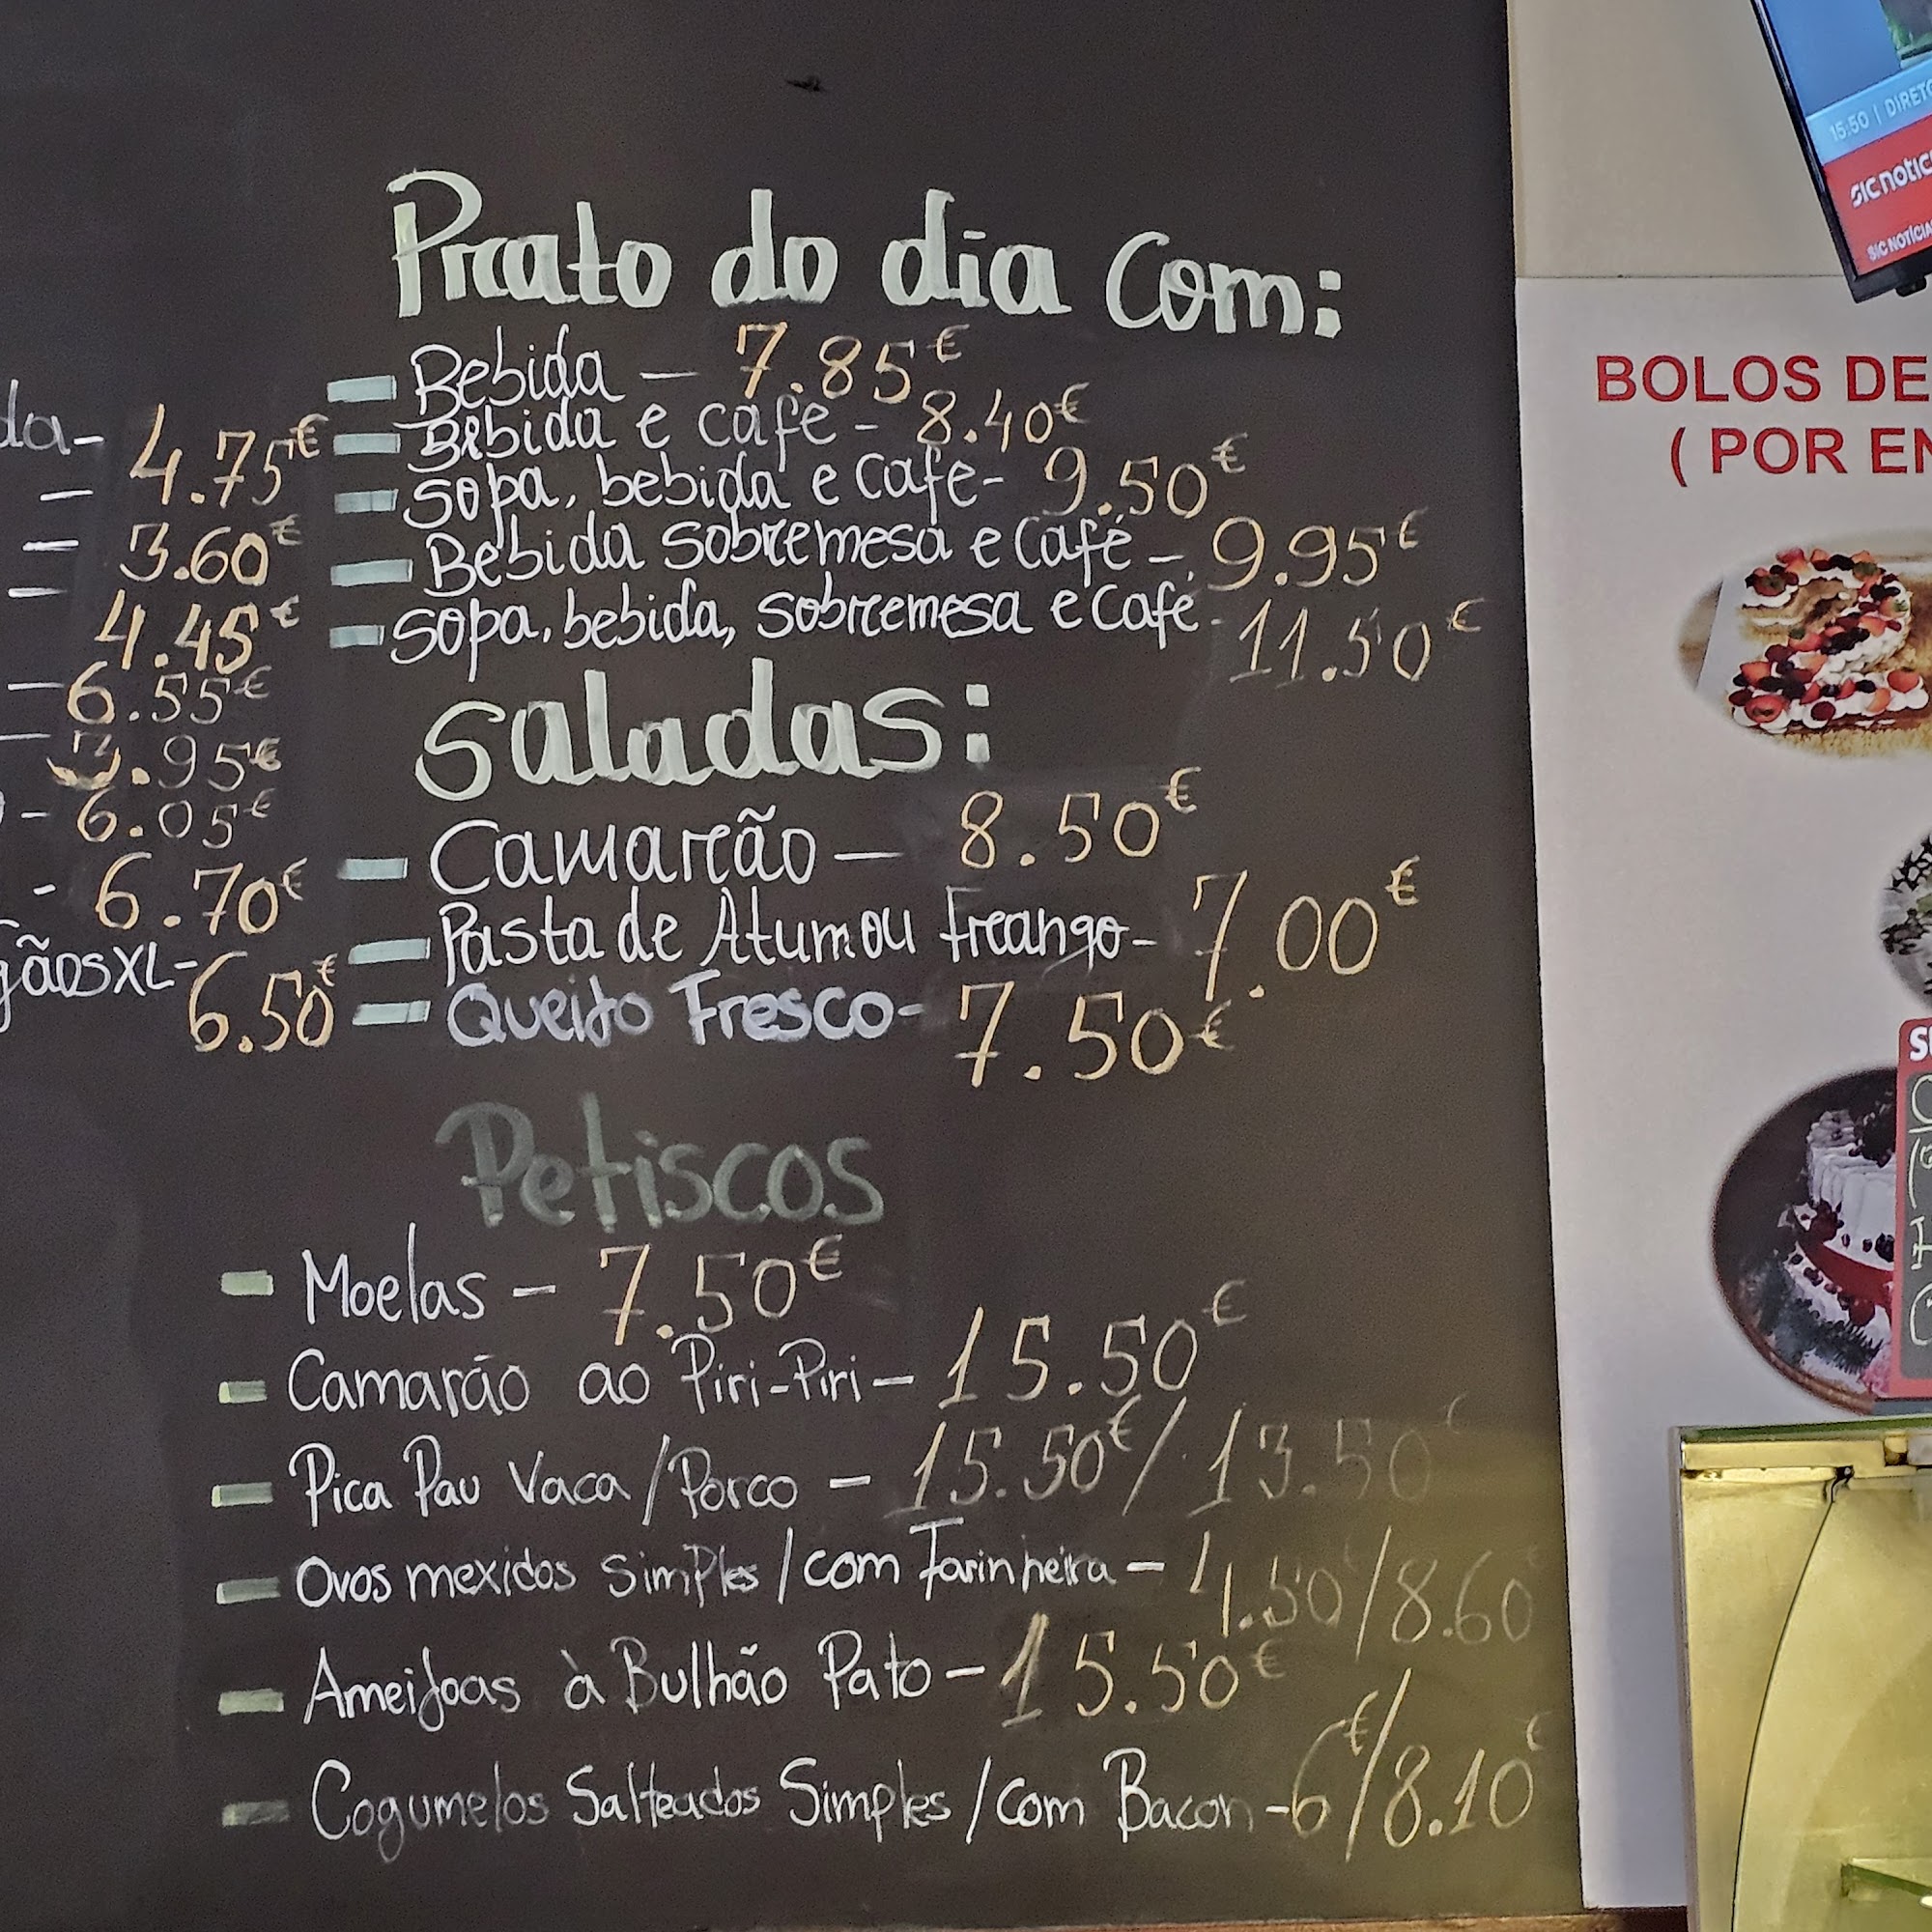 Prato do dia com:
Bebida - 7.85€
Bebida e café - 8.40€
Sopa, bebida e café - 9.50€
Bebida sobremesa e café - 9.95€
Sopa, bebida, sobremesa e café - 11.50€
Saladas:
Camarão - 8.50€
Pasta de Atum ou Frango - 7.00€
Queijo Fresco - 7.50€
Petiscos
Moelas - 7.50€
Camarão ao Piri-Piri - 15.50€
Pica Pau Vaca/Porco - 15.50€/13.50€
Ovos mexidos simples/com Farinheira - 4.50€/8.60€
Ameijoas à Bulhão Pato - 15.50€
Cogumelos Salteados Simples/com Bacon - 6€/8.10€
da - 4.75€
- 3.60€
- 4.45€
- 6.55€
- 3.95€
- 6.05€
- 6.70€
gãos XL - 6.50€
15:50 | DIRETO
SIC notíc
SIC NOTÍCIA
BOLOS DE
( POR EN